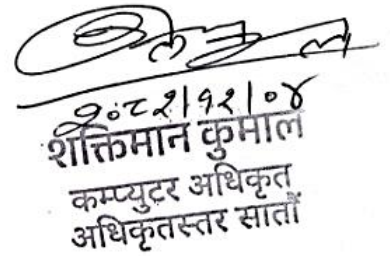 २०८२।१२।०४
शक्तिमान कुमाल
कम्प्युटर अधिकृत
अधिकृतस्तर सातौं